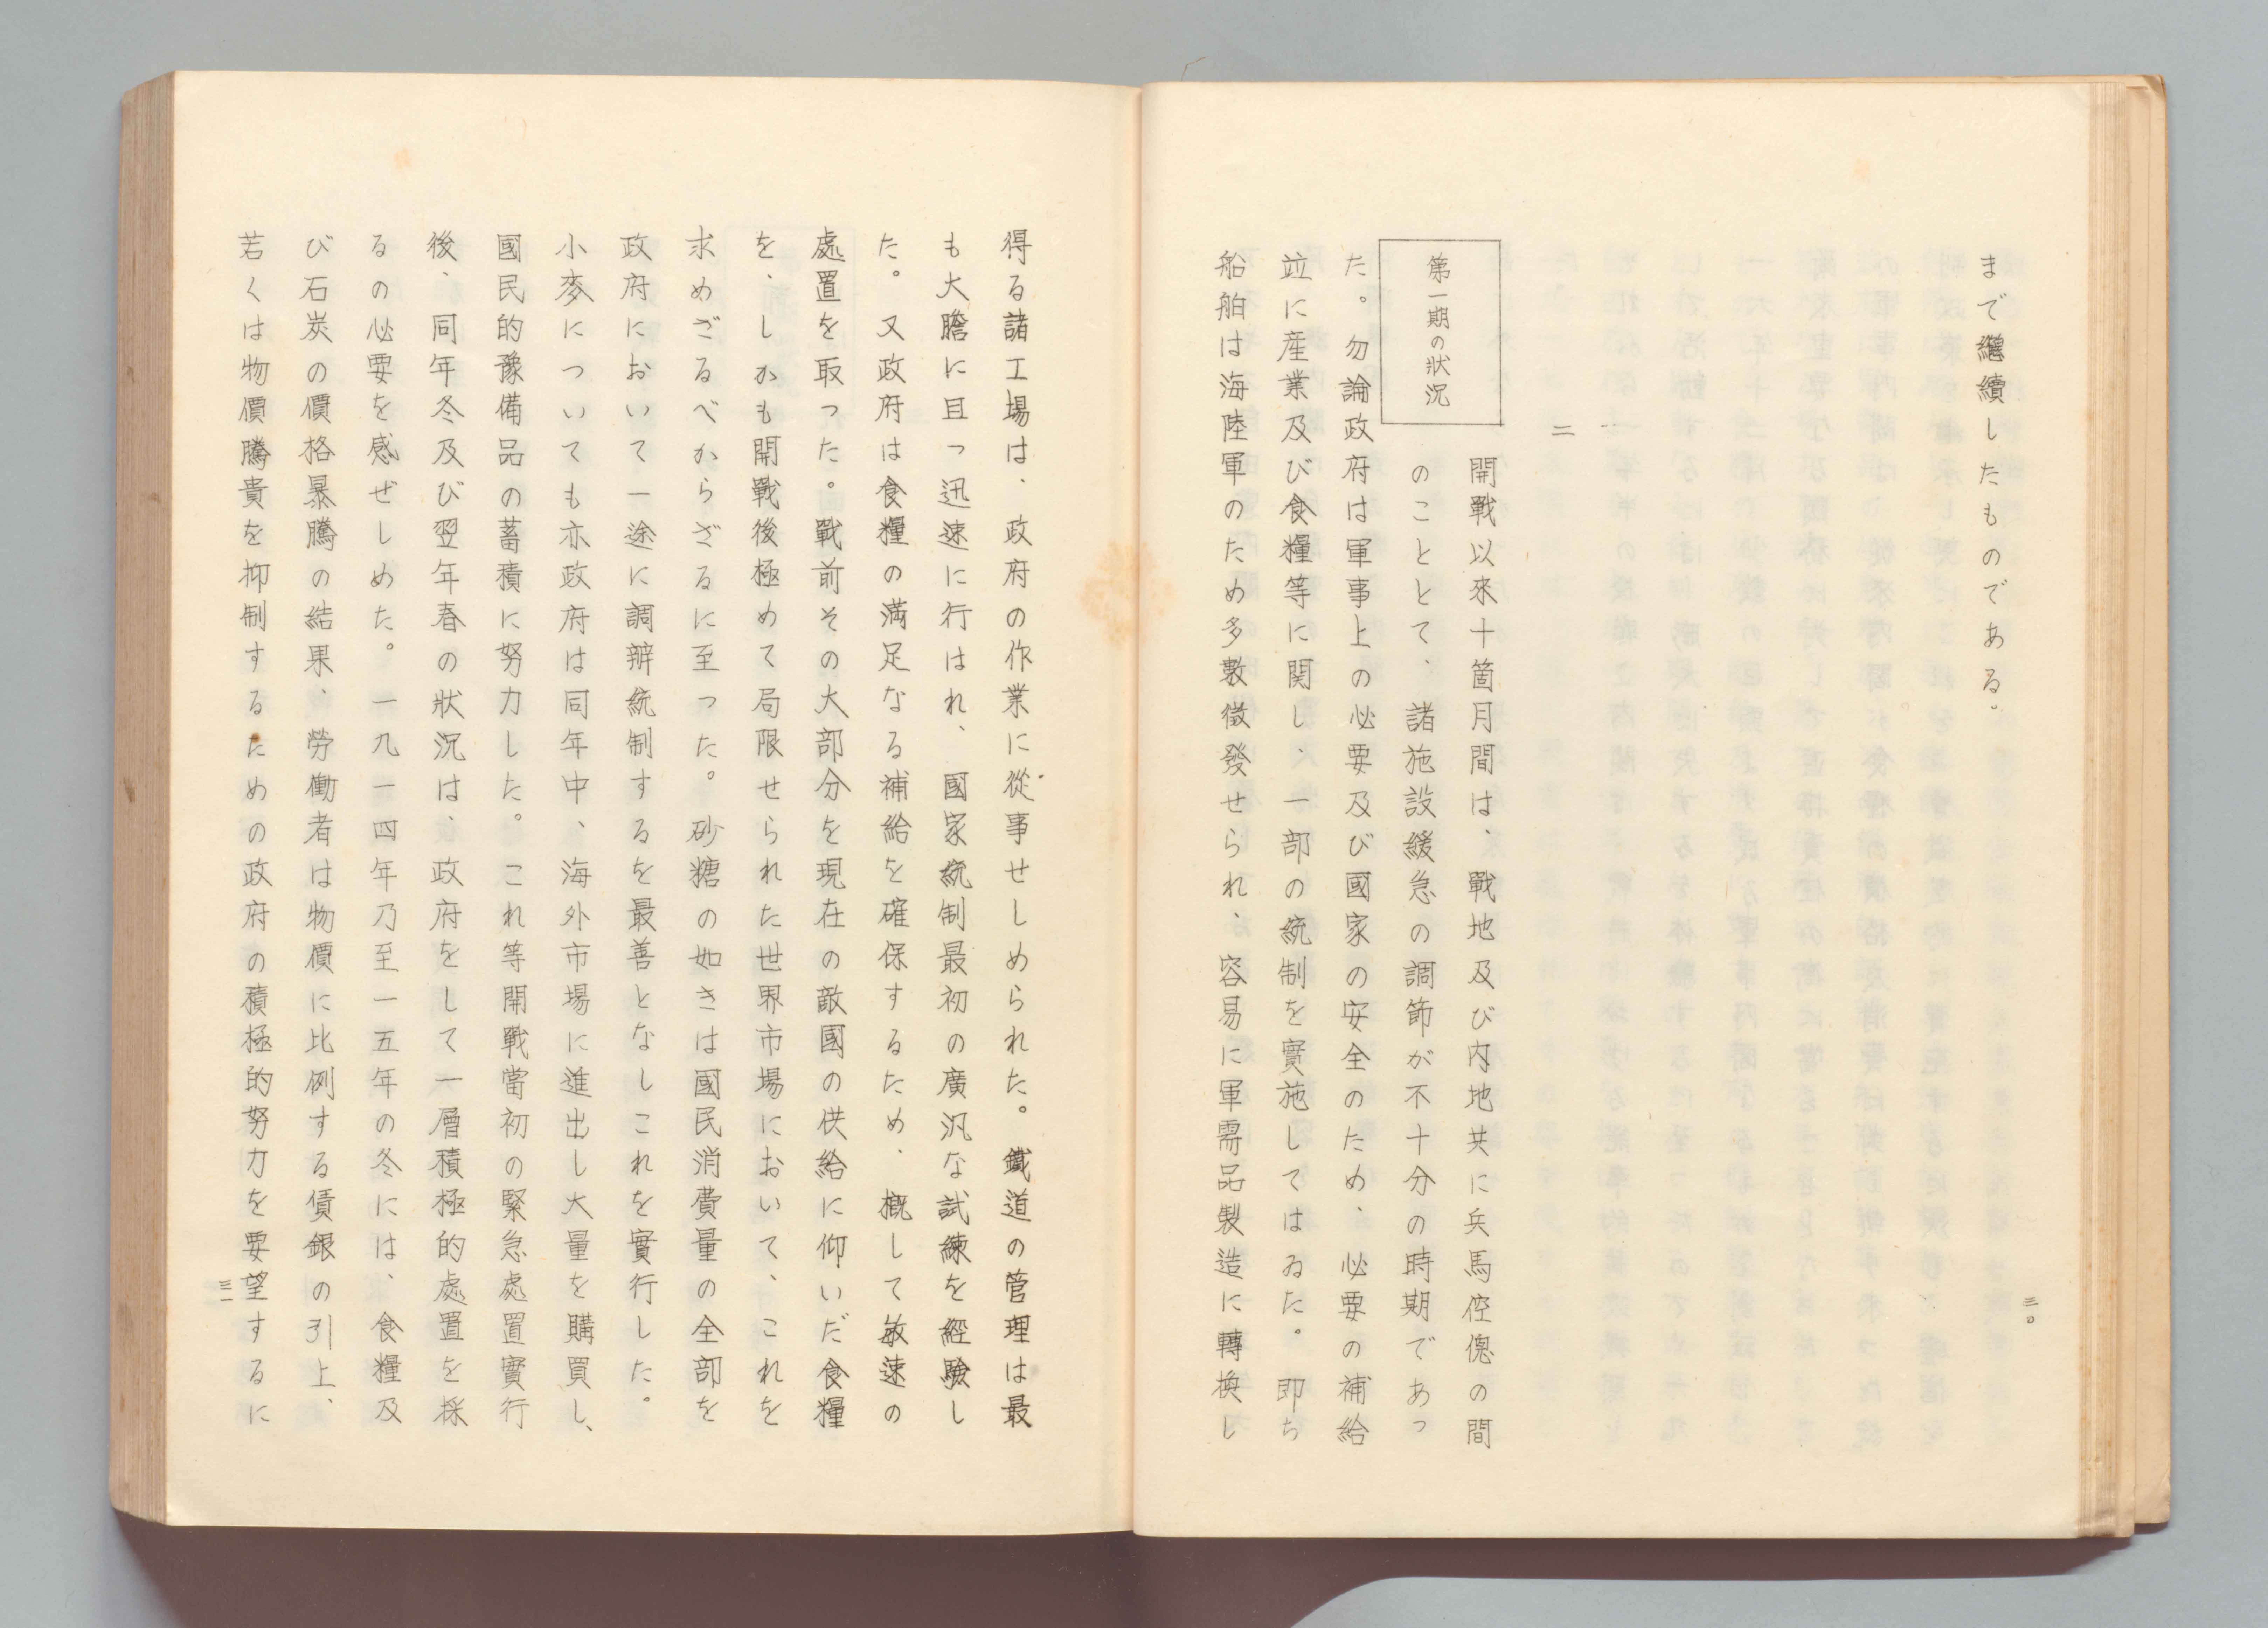 まで繼續したものである。
二
第一期の狀況
開戰以來十箇月間は、戰地及び内地共に兵馬倥傯の間
のこととて、諸施設緩急の調節が不十分の時期であつ
た。勿論政府は軍事上の必要及び國家の安全のため、必要の補給
竝に産業及び食糧等に関し、一部の統制を實施してはゐた。即ち
船舶は海陸軍のため多數徴發せられ、容易に軍需品製造に轉換し
三〇
得る諸工場は、政府の作業に從事せしめられた。鐵道の管理は最
も大膽に且つ迅速に行はれ、國家統制最初の廣汎な試練を經驗し
た。又政府は食糧の満足なる補給を確保するため、概して敏速の
處置を取つた。戰前その大部分を現在の敵國の供給に仰いだ食糧
を、しかも開戰後極めて局限せられた世界市場において、これを
求めざるべからざるに至つた。砂糖の如きは國民消費量の全部を
政府において一途に調辨統制するを最善となしこれを實行した。
小麥についても亦政府は同年中、海外市場に進出し大量を購買し、
國民的豫備品の蓄積に努力した。これ等開戰當初の緊急處置實行
後、同年冬及び翌年春の狀況は、政府をして一層積極的處置を採
るの必要を感ぜしめた。一九一四年乃至一五年の冬には、食糧及
び石炭の價格暴騰の結果、勞働者は物價に比例する賃銀の引上、
若くは物價騰貴を抑制するための政府の積極的努力を要望するに
三一